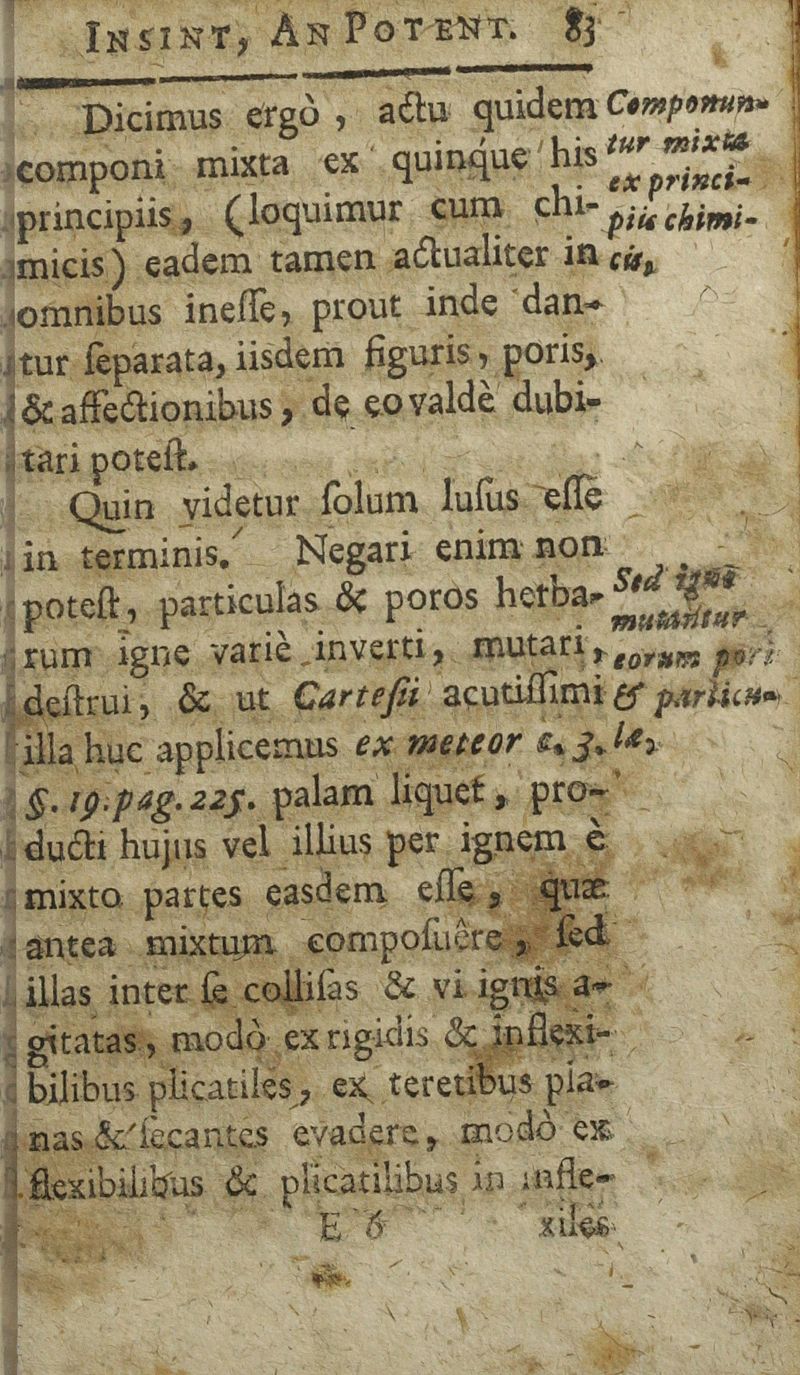 INSINT, AN POTENT. 83
Dicimus ergò, actu quidem
componi mixta ex quinque his
principiis, (loquimur cum chi-
micis) eadem tamen actualiter in
omnibus ineſſe, prout inde dan-
tur ſeparata, iisdem figuris, poris,
& affectionibus, de eo valdè dubi-
tari poteſt.
Quin videtur ſolum luſus eſſe
in terminis. Negari enim non
poteſt, particulas & poros herba-
rum igne variè inverti, mutari,
deſtrui, & ut Carteſii acutiſſimi
illa huc applicemus ex meteor c. 3.
§. 19. pag. 225. palam liquet, pro-
ducti hujus vel illius per ignem è
mixto partes easdem eſſe, quæ
antea mixtum compoſuêre, ſed
illas inter ſe colliſas & vi ignis a-
gitatas, modò ex rigidis & inflexi-
bilibus plicatiles, ex teretibus pla-
nas & ſecantes evadere, modò ex
flexibilibus & plicatilibus in infle-
E 6 xiles
Componun-
tur mixta
ex princi-
piis chimi-
cis,
Sed igne
mutantur
eorum pori
& particu-
læ,